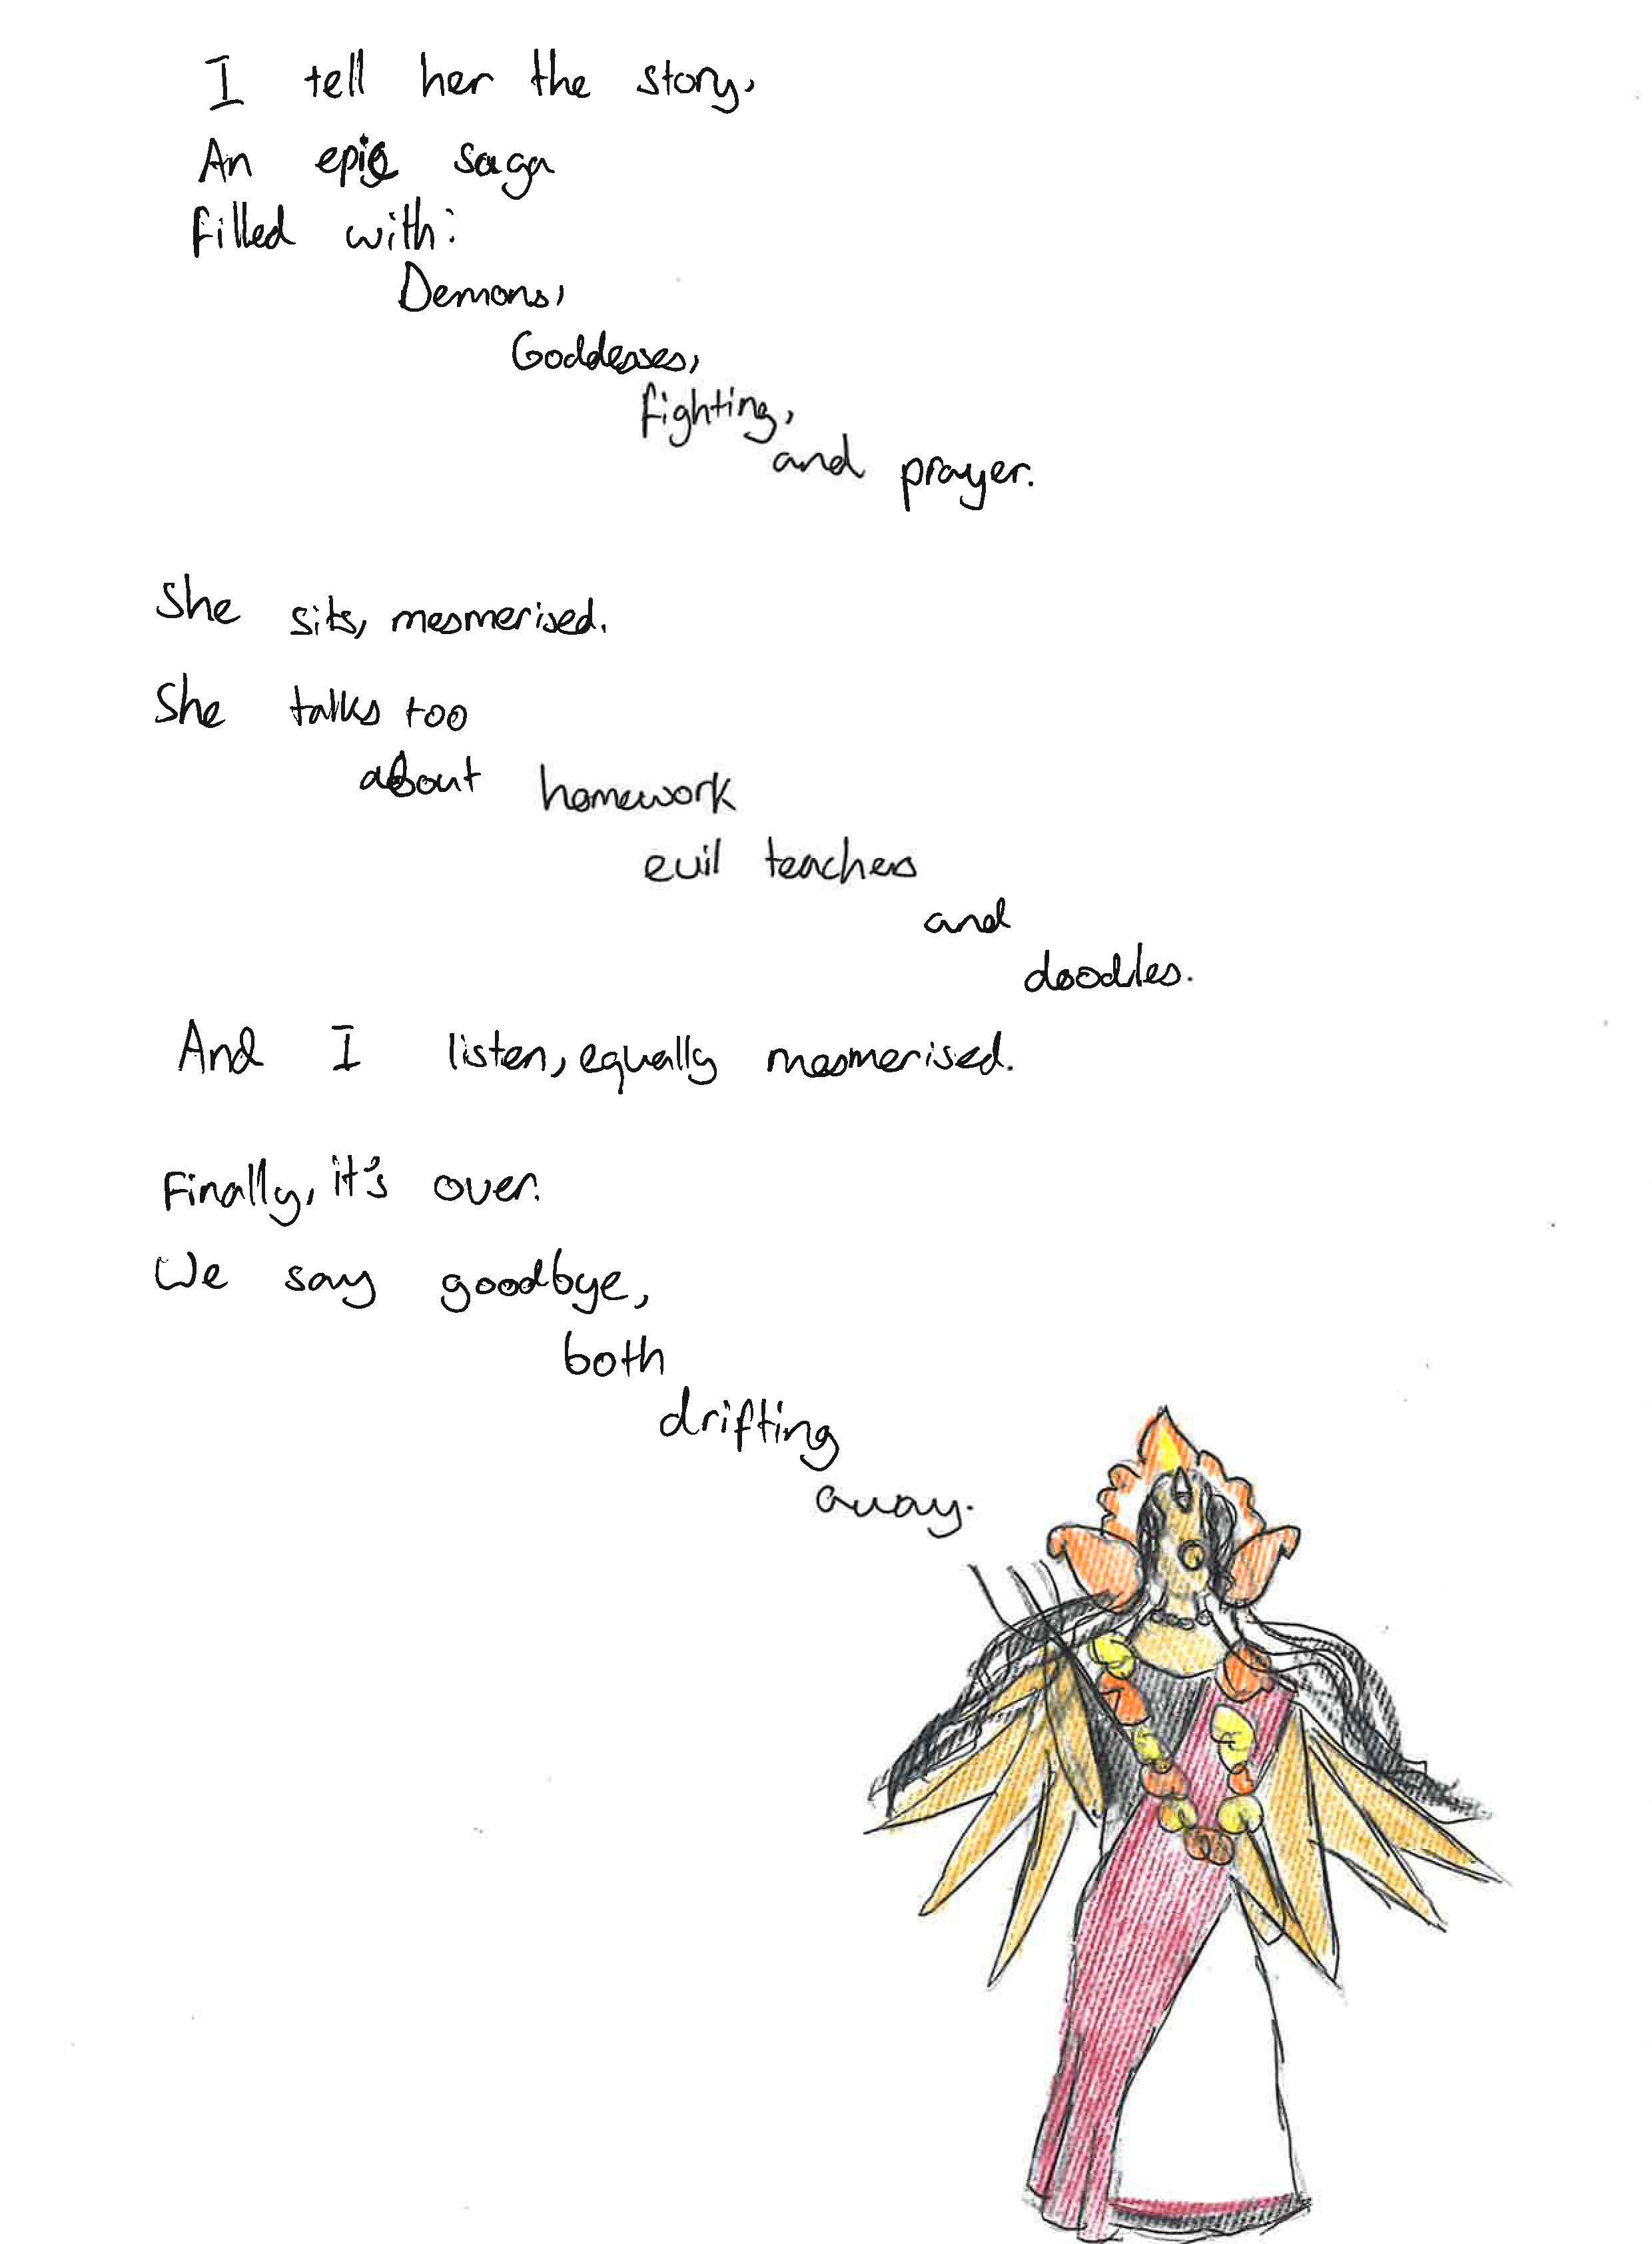 I tell her the story,
An epic saga
filled with:
Demons,
Goddesses,
fighting,
and prayer.
She sits, mesmerised.
She talks too
about homework
evil teachers
and
doodles.
And I listen, equally mesmerised.
Finally, it's over.
We say goodbye,
both
drifting
away.